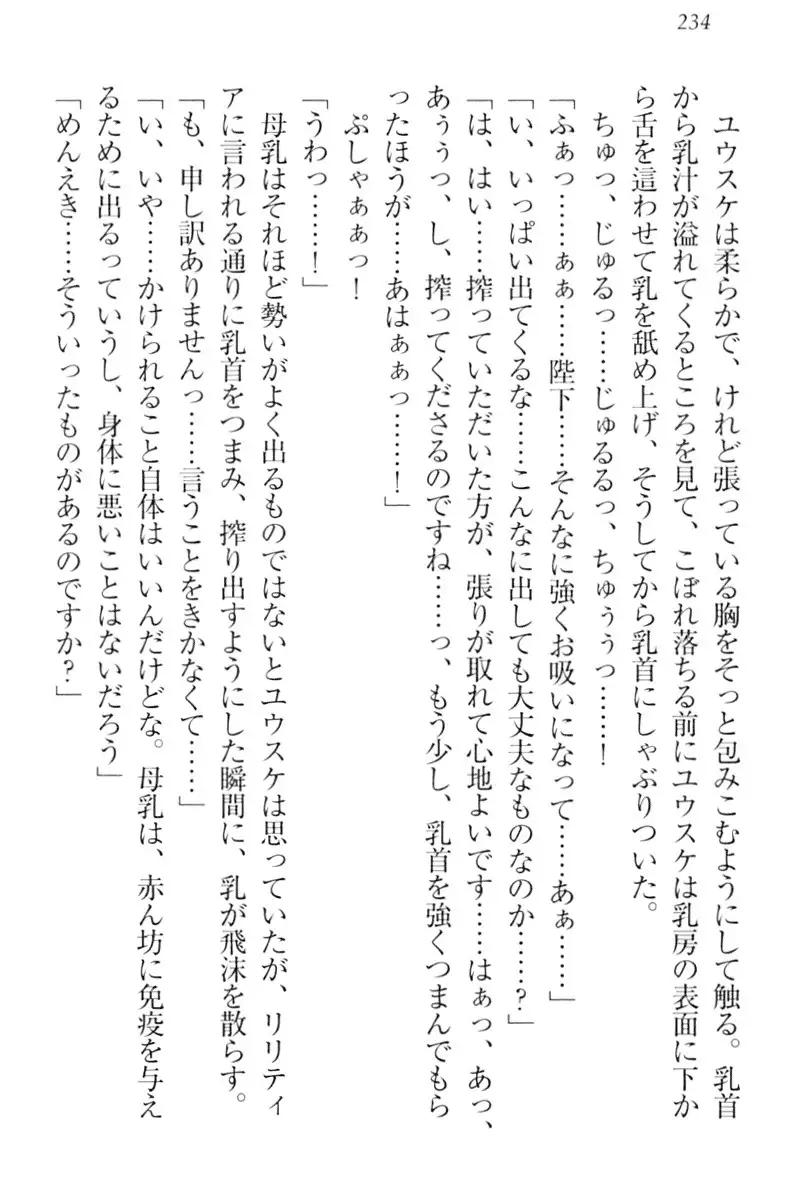 234
ユウスケは柔らかで、けれど張っている胸をそっと包みこむようにして触る。乳首
から乳汁が溢れてくるところを見て、こぼれ落ちる前にユウスケは乳房の表面に下か
ら舌を這わせて乳を舐め上げ、そうしてから乳首にしゃぶりついた。
ちゅっ、じゅるっ……じゅるるっ、ちゅぅぅっ……！
「ふぁっ……ぁぁ……陛下……そんなに強くお吸いになって……あぁ……」
「い、いっぱい出てくるな……こんなに出しても大丈夫なものなのか……？」
「は、はい……搾っていただいた方が、張りが取れて心地よいです……はぁっ、あっ、
あぅぅっ、し、搾ってくださるのですね……っ、もう少し、乳首を強くつまんでもら
ったほうが……あはぁぁっ……！」
ぷしゃぁぁっ！
「うわっ……！」
母乳はそれほど勢いがよく出るものではないとユウスケは思っていたが、リリティ
アに言われる通りに乳首をつまみ、搾り出すようにした瞬間に、乳が飛沫を散らす。
「も、申し訳ありませんっ……言うことをきかなくて……」
「い、いや……かけられること自体はいいんだけどな。母乳は、赤ん坊に免疫を与え
るために出るっていうし、身体に悪いことはないだろう」
「めんえき……そういったものがあるのですか？」